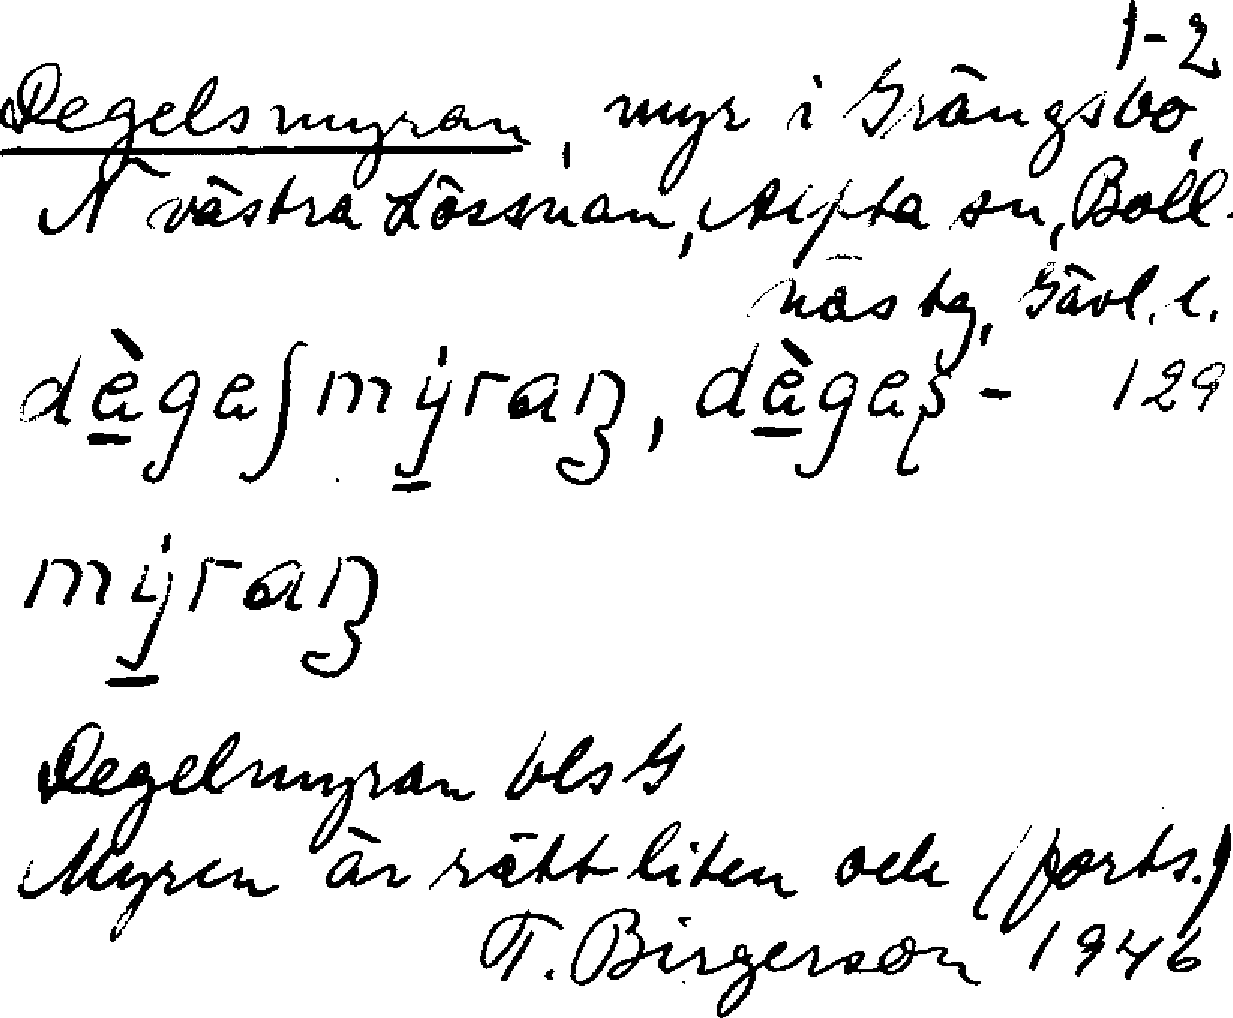 1-2
Degelsmyran, myr i Grängsbo,
N västra Lössnan, Alfta sn, Boll-
näs tg, Gävl. l.
dègeʃmýran, dègeʂ- 129
mýran
Degelmyran bls G
Myren är rätt liten och (forts.)
T. Birgerson 1946